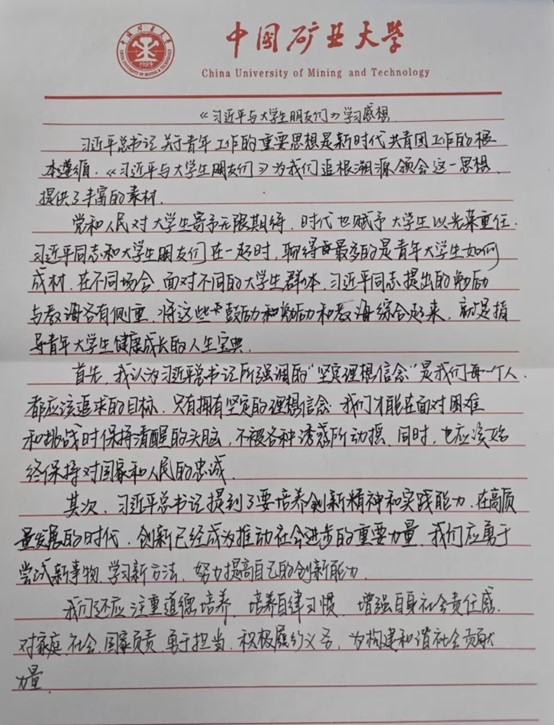 中国矿业大学
China University of Mining and Technology
《习近平与大学生朋友们》学习感想
习近平总书记关于青年工作的重要思想是新时代共青团工作的根
本遵循.《习近平与大学生朋友们》为我们追根溯源、领会这一思想
提供了丰富的素材.
党和人民对大学生寄予无限期待,时代也赋予大学生以光荣重任.
习近平同志和大学生朋友们在一起时,聊得最多的是青年大学生如何
成材.在不同场合,面对不同的大学生群体,习近平同志提出的勉励
与教诲各有侧重.将这些鼓励和勉励和教诲综合起来,就是指
导青年大学生健康成长的人生宝典.
首先,我认为习近平总书记所强调的“坚定理想信念”是我们每一个人
都应该追求的目标.只有拥有坚定的理想信念,我们才能在面对困难
和挑战时保持清醒的头脑,不被各种诱惑所动摇.同时,也应该始
终保持对国家和人民的忠诚.
其次,习近平总书记提到了要培养创新精神和实践能力.在高质
量发展的时代,创新已经成为推动社会进步的重要力量.我们应勇于
尝试新事物,学习新方法,努力提高自己的创新能力.
我们还应注重道德培养,培养自律习惯,增强自身社会责任感.
对家庭、社会、国家负责,勇于担当,积极履行义务,为构建和谐社会贡献
力量.